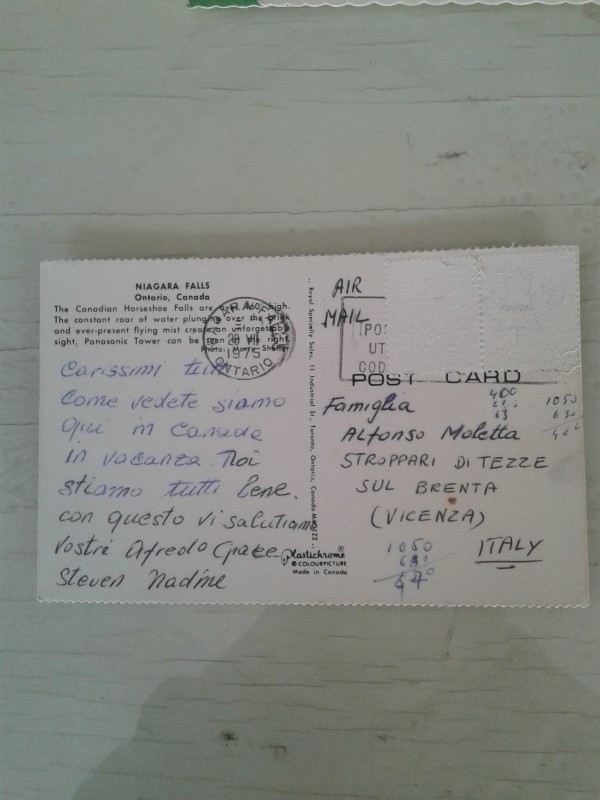 NIAGARA FALLS
Ontario, Canada
The Canadian Horseshoe Falls are 160' high.
The constant roar of water plunging over the brink
and ever-present flying mist create an unforgettable
sight, Panasonic Tower can be seen at right.
Photo: Shaffer
ONTARIO
1975
Carissimi tutti
Come vedete siamo
qui in Canada
in vacanza. Noi
stiamo tutti bene.
con questo vi salutiamo
vostri Alfredo Grace
Steven Nadine
Royal Specialty Sales, 11 Industrial St., Toronto, Ontario, Canada
Plastichrome®
© COLOURPICTURE
Made in Canada
AIR
MAIL
UT
COD
POST CARD
Famiglia
Alfonso Moletta
STROPPARI DI TEZZE
SUL BRENTA
(VICENZA)
ITALY
400
63
1050
630
1050